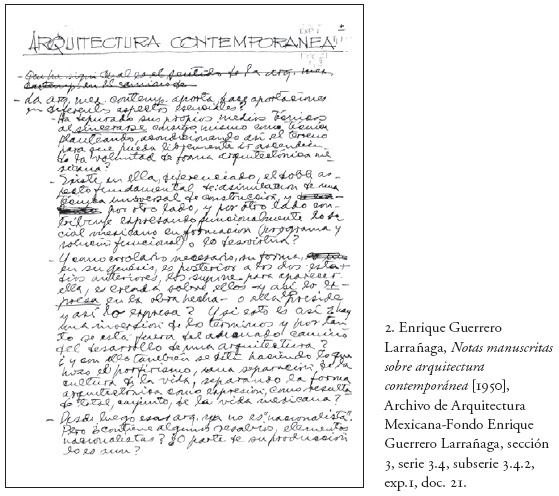 ARQUITECTURA CONTEMPORANEA
- La arq. mex. contemp. aporta, hace aportaciones
en diferentes aspectos esenciales?
- Ha depurado sus propios medios técnicos
al sincerarse consigo mismo como técnica
planteando, acondicionando así el terreno
para que pueda libremente ir ascendien-
do la voluntad de forma arquitectónica me-
xicana?
- Existe en ella, diferenciado, el doble as-
pecto fundamental de asimilación de una
técnica universal de construcción, y
por otro lado, y por otro lado con-
tribuye expresando funcionalmente lo so-
cial mexicano en formación (programa y
solución funcional) o lo desvirtúa?
- Y como corolario necesario, su forma,
en su génesis, es posterior a los dos esta-
dios anteriores, los supone para aparecer
ella, es creada sobre ellos y así lo ex-
presa en la obra hecha - o ella preside
y así lo expresa? Y si esto es así ¿hay
una inversión de los términos y por tan-
to se está fuera del adecuado camino
del desarrollo de una arquitectura?
¿y con ella también se está haciendo lo que
hizo el porfirismo, una separación de la
cultura de la vida, separando la forma
arquitectónica como expresión, como resulta-
do total, conjunto, de la vida mexicana?
- Desde luego esa arq. ya no es "nacionalista".
Pero ¿contiene algunos resabios, elementos
nacionalistas? ¿O parte de su producción
lo es aun?
2. Enrique Guerrero
Larrañaga, Notas manuscritas
sobre arquitectura
contemporánea [1950],
Archivo de Arquitectura
Mexicana-Fondo Enrique
Guerrero Larrañaga, sección
3, serie 3.4, subserie 3.4.2,
exp.1, doc. 21.